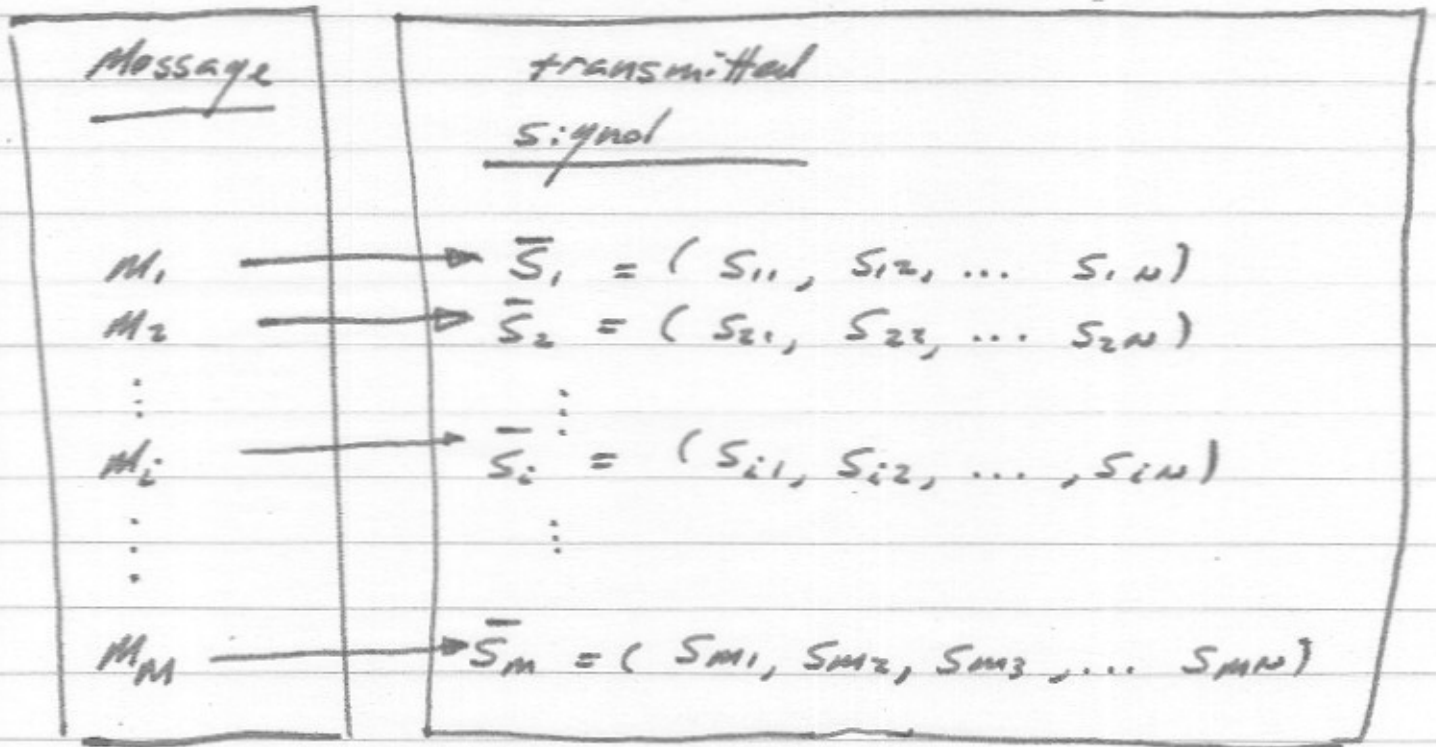 Message transmitted
signal
m₁ → s̄₁ = ( s₁₁, s₁₂, ... s₁N)
m₂ → s̄₂ = ( s₂₁, s₂₂, ... s₂N)
⋮ ⋮
mᵢ → s̄ᵢ = ( sᵢ₁, sᵢ₂, ... , sᵢN)
⋮ ⋮
m_M → s̄_M = ( s_M1, s_M2, s_M3 , ... s_MN)